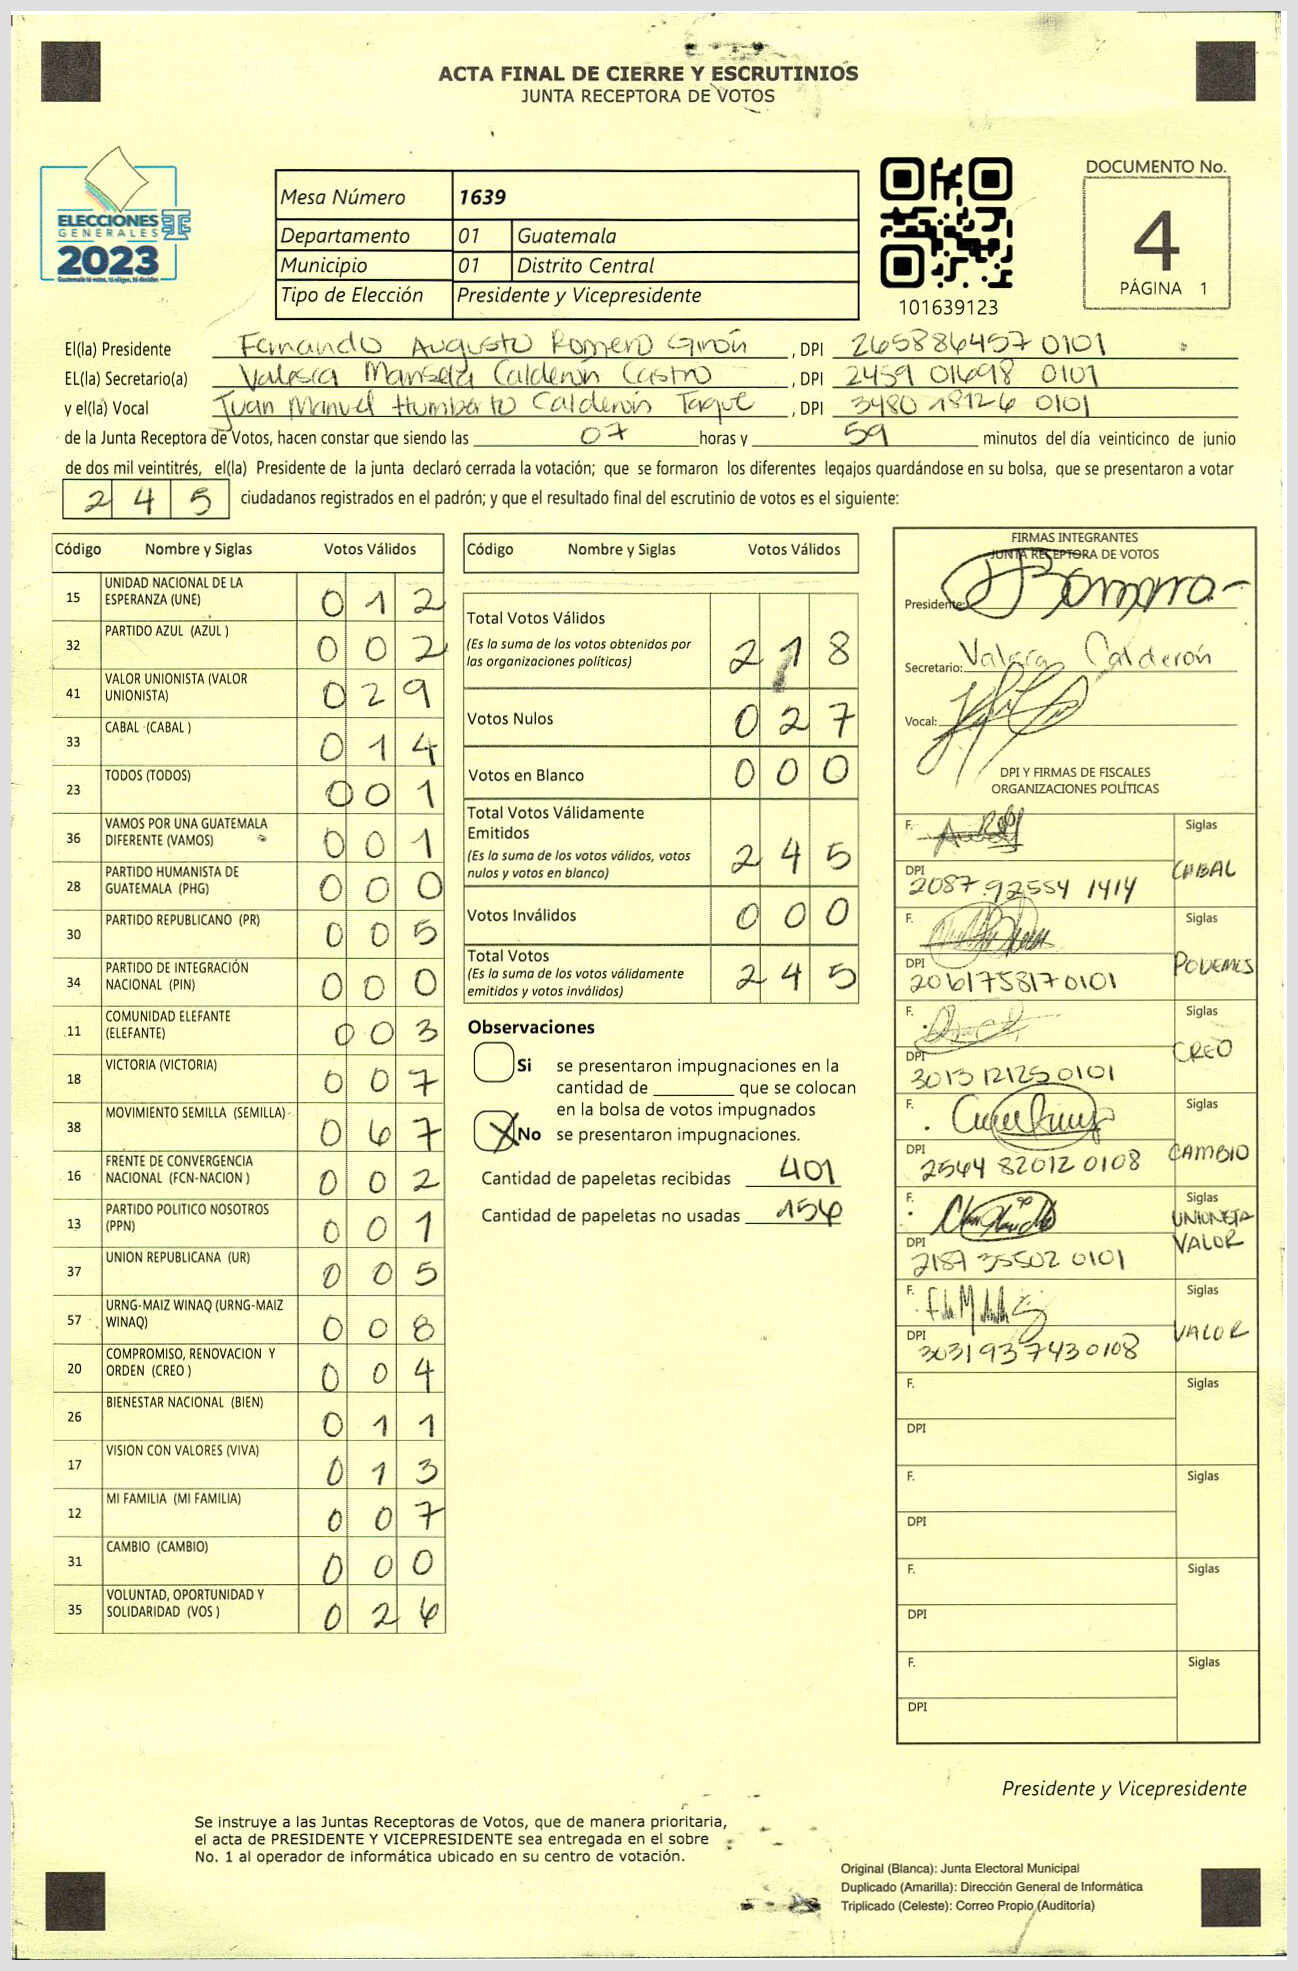 ACTA FINAL DE CIERRE Y ESCRUTINIOS
JUNTA RECEPTORA DE VOTOS
ELECCIONES
GENERALES
2023
Mesa Número 1639
Departamento 01 Guatemala
Municipio 01 Distrito Central
Tipo de Elección Presidente y Vicepresidente
101639123
DOCUMENTO No.
4
PÁGINA 1
El(la) Presidente Fernando Augusto Romero Girón , DPI 265886457 0101
EL(la) Secretario(a) Valeska Calderón Castro , DPI 2459 01698 0101
y el(la) Vocal Juan Manuel Humberto Calderón , DPI 3480 18126 0101
de la Junta Receptora de Votos, hacen constar que siendo las 07 horas y 59 minutos del día veinticinco de junio
de dos mil veintitrés, el(la) Presidente de la junta declaró cerrada la votación; que se formaron los diferentes legajos guardándose en su bolsa, que se presentaron a votar
245 ciudadanos registrados en el padrón; y que el resultado final del escrutinio de votos es el siguiente:
Código Nombre y Siglas Votos Válidos
15 UNIDAD NACIONAL DE LA ESPERANZA (UNE) 012
32 PARTIDO AZUL (AZUL ) 002
41 VALOR UNIONISTA (VALOR UNIONISTA) 029
33 CABAL (CABAL ) 014
23 TODOS (TODOS) 001
36 VAMOS POR UNA GUATEMALA DIFERENTE (VAMOS) 001
28 PARTIDO HUMANISTA DE GUATEMALA (PHG) 000
30 PARTIDO REPUBLICANO (PR) 005
34 PARTIDO DE INTEGRACIÓN NACIONAL (PIN) 000
11 COMUNIDAD ELEFANTE (ELEFANTE) 003
18 VICTORIA (VICTORIA) 007
38 MOVIMIENTO SEMILLA (SEMILLA) 067
16 FRENTE DE CONVERGENCIA NACIONAL (FCN-NACION ) 002
13 PARTIDO POLITICO NOSOTROS (PPN) 001
37 UNION REPUBLICANA (UR) 005
57 URNG-MAIZ WINAQ (URNG-MAIZ WINAQ) 008
20 COMPROMISO, RENOVACION Y ORDEN (CREO ) 004
26 BIENESTAR NACIONAL (BIEN) 011
17 VISION CON VALORES (VIVA) 013
12 MI FAMILIA (MI FAMILIA) 007
31 CAMBIO (CAMBIO) 000
35 VOLUNTAD, OPORTUNIDAD Y SOLIDARIDAD (VOS ) 026
Código Nombre y Siglas Votos Válidos
Total Votos Válidos
(Es la suma de los votos obtenidos por
las organizaciones políticas) 218
Votos Nulos 027
Votos en Blanco 000
Total Votos Válidamente
Emitidos
(Es la suma de los votos válidos, votos
nulos y votos en blanco) 245
Votos Inválidos 000
Total Votos
(Es la suma de los votos válidamente
emitidos y votos inválidos) 245
Observaciones
Si se presentaron impugnaciones en la
cantidad de ________ que se colocan
en la bolsa de votos impugnados
X No se presentaron impugnaciones.
Cantidad de papeletas recibidas 401
Cantidad de papeletas no usadas 156
FIRMAS INTEGRANTES
JUNTA RECEPTORA DE VOTOS
Presidente:
Secretario: Valeska Calderón
Vocal:
DPI Y FIRMAS DE FISCALES
ORGANIZACIONES POLÍTICAS
F. Siglas
DPI 2087 92554 1414 CABAL
F. Siglas
DPI 2061758170101 PODEMOS
F. Siglas
DPI 3013 12125 0101 CREO
F. Siglas
DPI 2564 82012 0108 CAMBIO
F. Siglas
DPI 2187 35502 0101 UNIONISTA VALOR
F. Siglas
DPI 3031937430108 VALOR
F. Siglas
DPI
F. Siglas
DPI
F. Siglas
DPI
F. Siglas
DPI
Presidente y Vicepresidente
Se instruye a las Juntas Receptoras de Votos, que de manera prioritaria,
el acta de PRESIDENTE Y VICEPRESIDENTE sea entregada en el sobre
No. 1 al operador de informática ubicado en su centro de votación.
Original (Blanca): Junta Electoral Municipal
Duplicado (Amarilla): Dirección General de Informática
Triplicado (Celeste): Correo Propio (Auditoría)